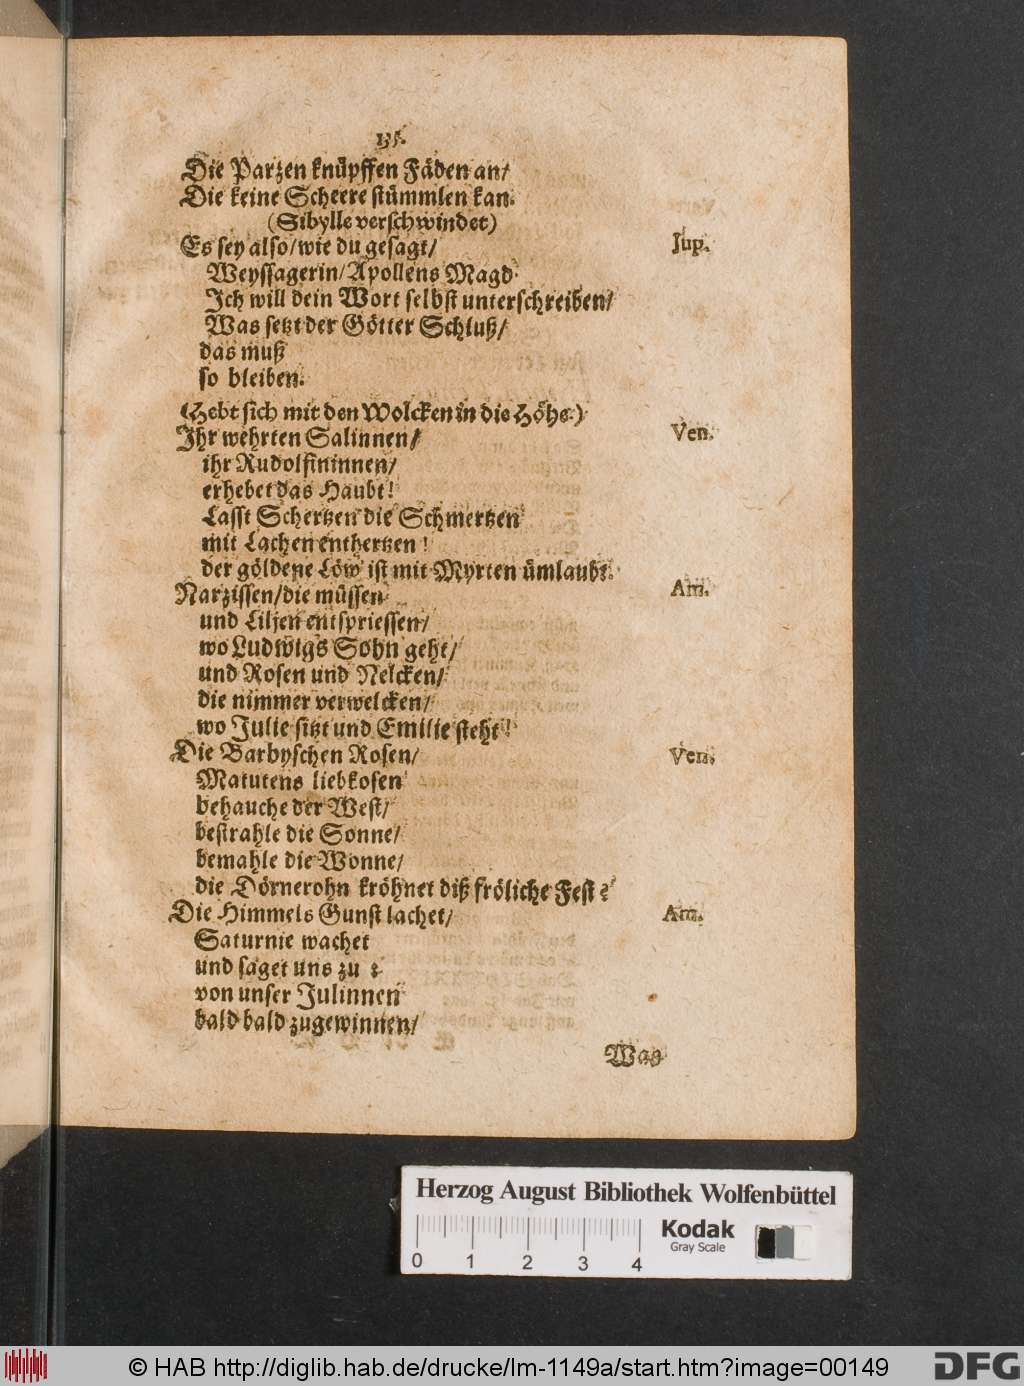 135.
Die Parzen knüpffen Fäden an/
Die keine Scheere stümmlen kan.
(Sibylle verschwindet)
Es sey also/wie du gesagt/ Jup.
Weyssagerin/Apollens Magd
Ich will dein Wort selbst unterschreiben/
Was setzt der Götter Schluß/
das muß
so bleiben.
(Hebt sich mit den Wolcken in die Höhe.)
Ihr wehrten Salinnen/ Ven.
ihr Rudolfininnen/
erhebet das Haubt!
Lasst Schertzen die Schmertzen
mit Lachen enthertzen!
der göldene Löw ist mit Myrten ümlaubt.
Narzissen/die müssen Am.
und Liljen entspriessen/
wo Ludwigs Sohn geht/
und Rosen und Nelcken/
die nimmer verwelcken/
wo Julie sitzt und Emilie steht!
Die Barbyschen Rosen/ Ven.
Matutens liebkosen
behauche der West/
bestrahle die Sonne/
bemahle die Wonne/
die Dörnerohn kröhnet diß fröliche Fest?
Die Himmels Gunst lachet/ Am.
Saturnie wachet
und saget uns zu :
von unser Julinnen
bald bald zugewinnen/
Was
Herzog August Bibliothek Wolfenbüttel
Kodak
Gray Scale
0 1 2 3 4
© HAB http://diglib.hab.de/drucke/lm-1149a/start.htm?image=00149
DFG